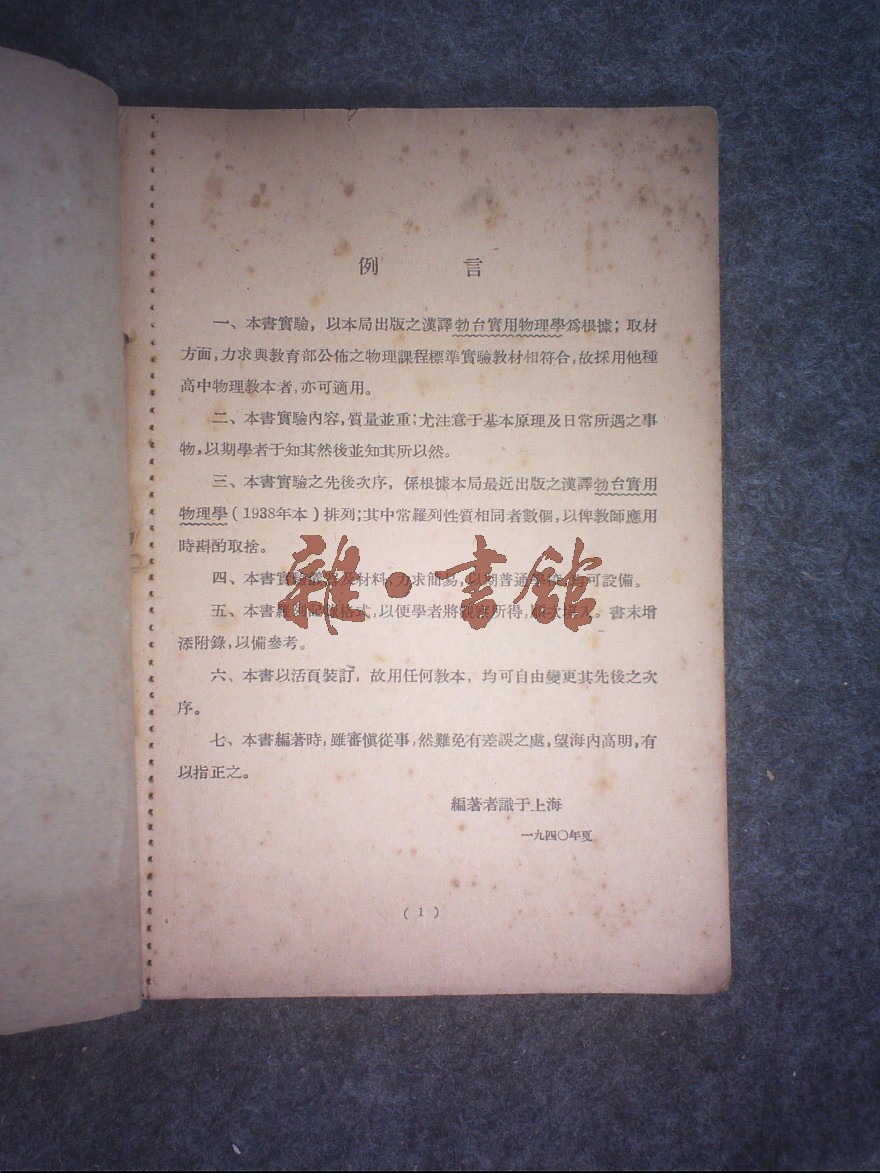 例言
一、本書實驗，以本局出版之漢譯勃台實用物理學爲根據；取材
方面，力求與敎育部公佈之物理課程標準實驗敎材相符合，故採用他種
高中物理敎本者，亦可適用。
二、本書實驗內容，質量並重；尤注意于基本原理及日常所遇之事
物，以期學者于知其然後並知其所以然。
三、本書實驗之先後次序，係根據本局最近出版之漢譯勃台實用
物理學（1938年本）排列；其中常羅列性質相同者數個，以俾敎師應用
時斟酌取捨。
四、本書實驗儀器及材料，力求簡易，以期普通學校，均可設備。
五、本書羅列記錄格式，以便學者將觀察所得，塡入。書末增
添附錄，以備參考。
六、本書以活頁裝訂，故用任何敎本，均可自由變更其先後之次
序。
七、本書編著時，雖審愼從事，然難免有差誤之處，望海內高明，有
以指正之。
編著者識于上海
一九四〇年夏
（1）
雜·書館